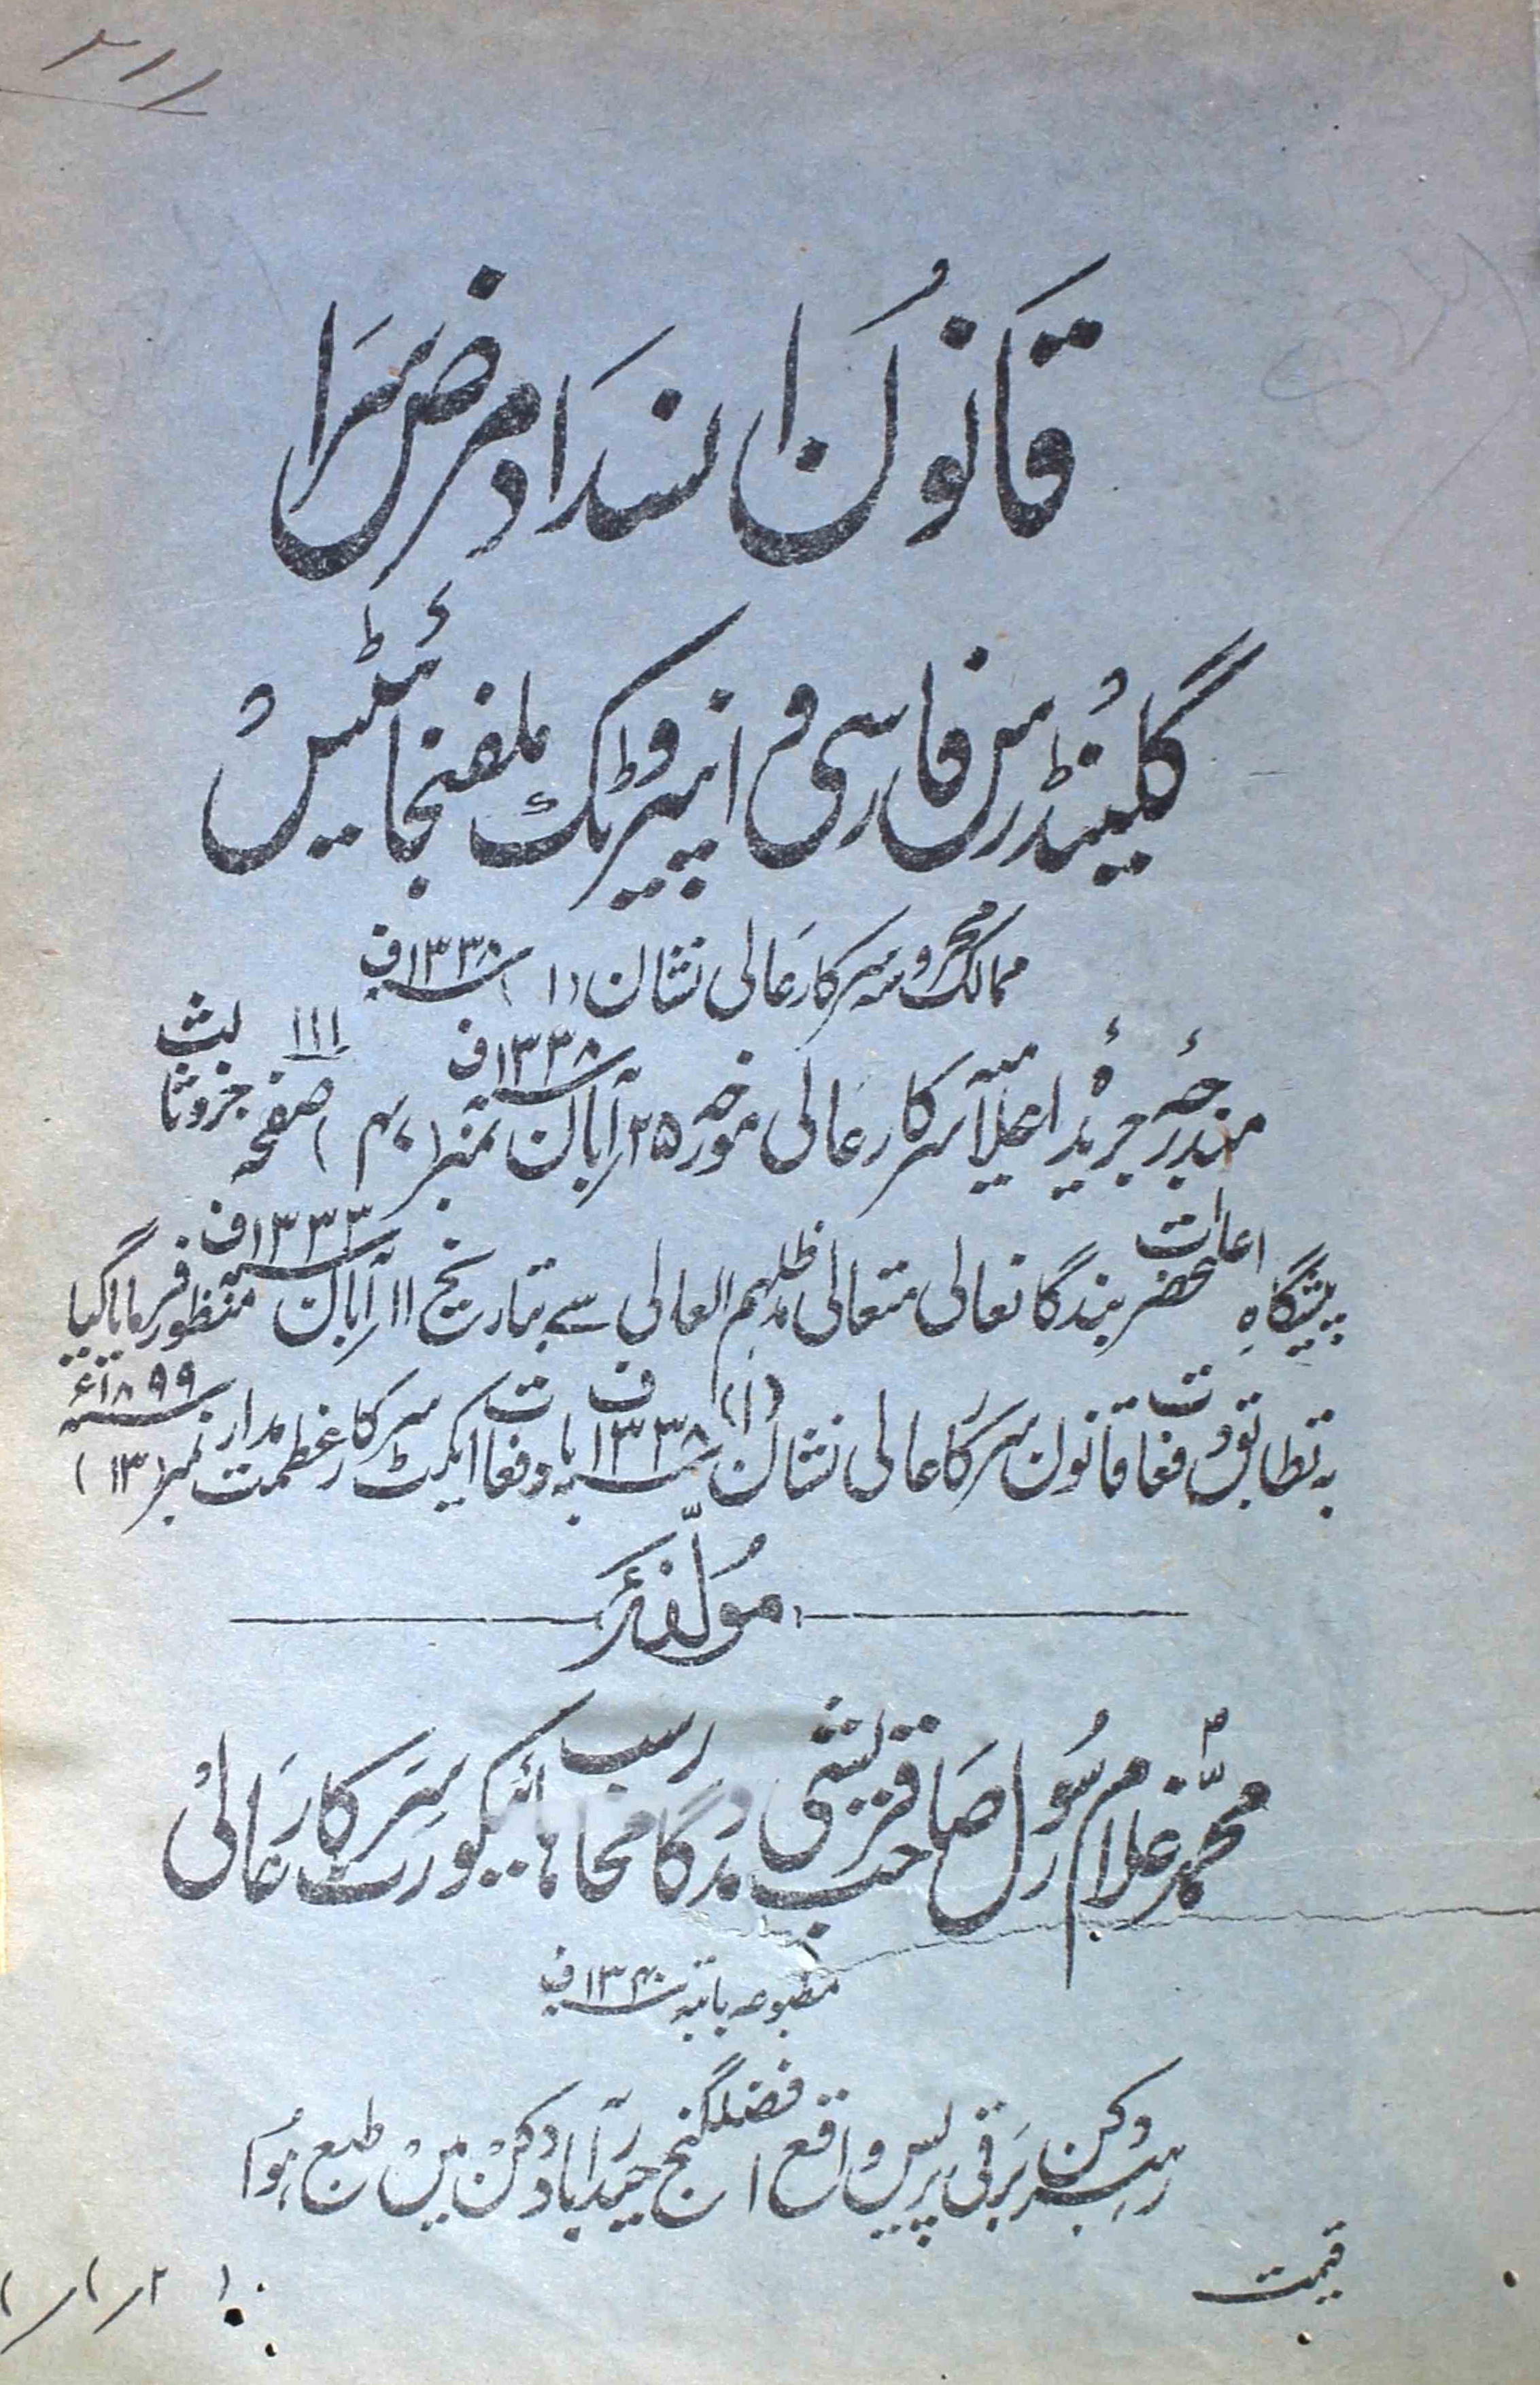 ۲۱۱
قانون انسداد امراض
گلینڈرس فارسی و اپیزوٹک لمفنجائٹیس
ممالک محروسہ سرکار عالی نشان (۱) ۱۳۳۸ف
مندرجہ جریدہ اعلامیہ سرکار عالی مورخہ ۲۵ آبان ۱۳۳۸ف نمبر (۴۰) صفحہ ۱۱۱ جزو ثالث
پیشگاہِ اعلحضرت بندگانعالی متعالی مدظلہم العالی سے بتاریخ ۱۱ آبان ۱۳۳۳ف منظور فرمایا گیا
بہ تطابق دفعات قانون سرکار عالی نشان (۱) ۱۳۳۸ف بادفعات ایکٹ سرکار عظمت مدار نمبر (۱۳) ۱۸۹۹ء
مولفہ
محمد غلام رسول صاحب قریشی مددگار محاسب ہائیکورٹ سرکار عالی
مطبوعہ بابتہ ۱۳۴۰ف
رہبر دکن برقی پریس واقع افضلگنج حیدرآباد دکن میں طبع ہوا
قیمت (۲ر)